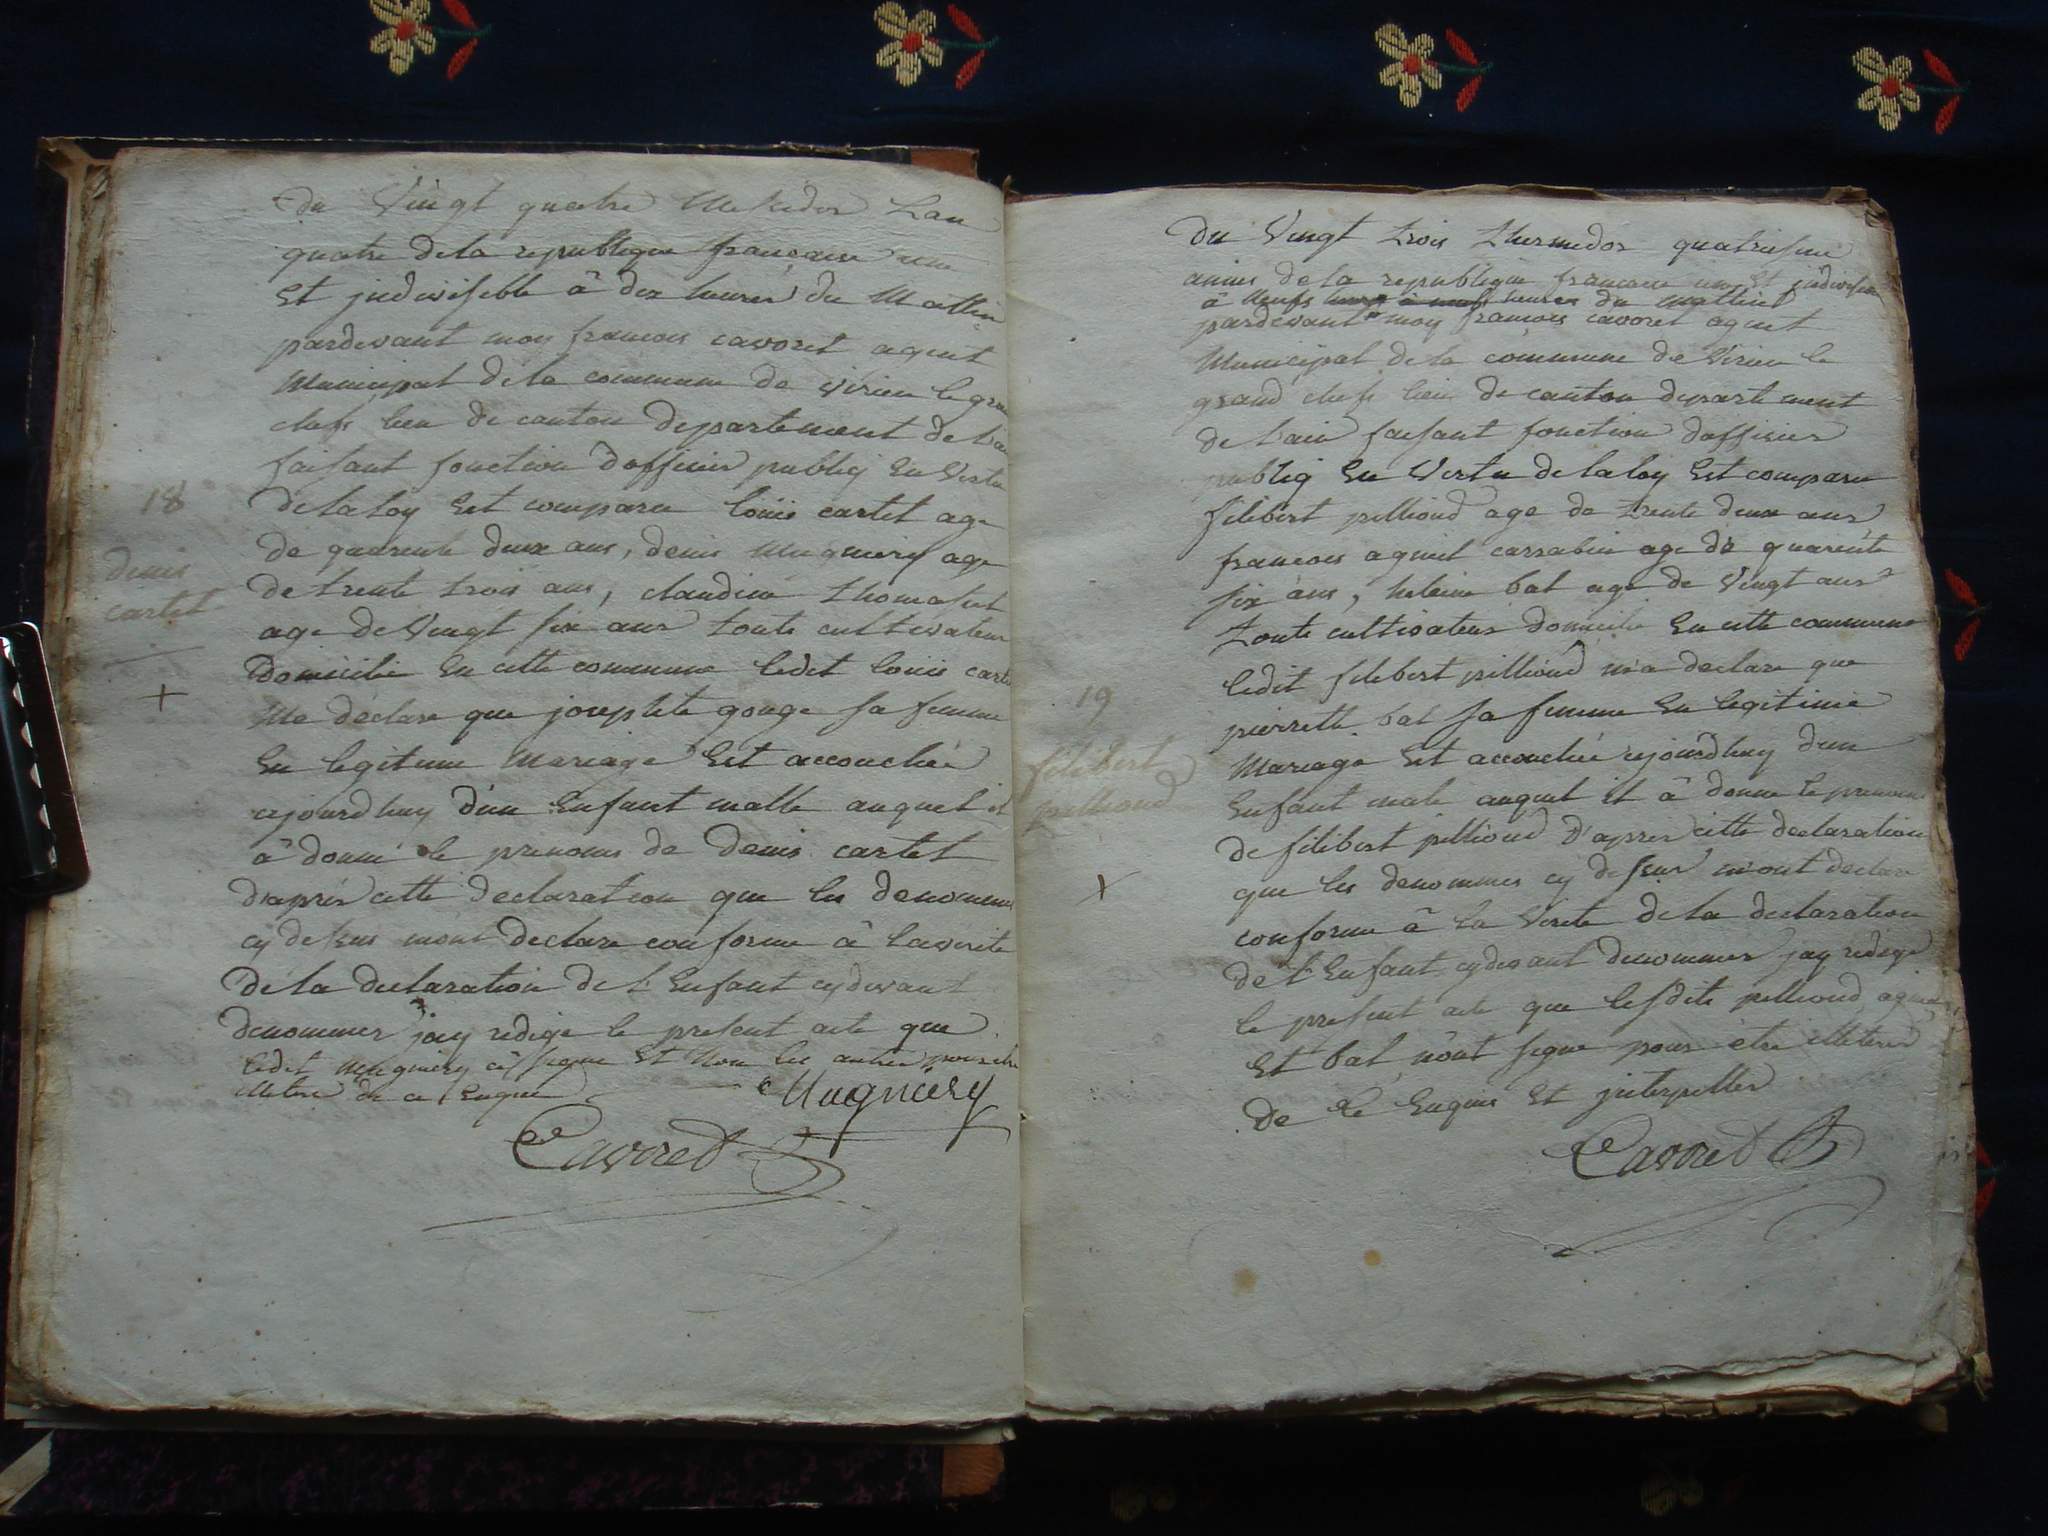 du Vingt quatre Messidor Lan
quatre de la republique française une
Et jndivisible â dix heures du Mattin
pardevant moy francois cavoret agent
Municipal de la commune de virieu le gran
chefs lieu de canton departement de l'ain
faisant fonction dofficier publiq En Vertu
de la loy Est comparu loüis cartet age
de quarente deux ans, denis Mugniery age
de trente trois ans, claudine thomasset
age de Vingt six ans toute cultivateur
Domicilié En cette commune ledit loüis cartet
Me declare que josephete gouge sa femme
En legitime Mariage Est accouchée
cejourdhuy d'un Enfant malle auquel il
â donné le prenoms de denis cartet
daprés cette declaration que les denommes
cy dessus m'ont declare conforme â laverite
de la declaration de l'Enfant cydevant
denommer jay redige le present acte que
ledit Mugniery â signe Et Non les autres pour etre
illetere de ce Enquis
Mugniery
Cavoret
18
denis
cartet
+
du Vingt trois thermidor quatriesme
annee de la republique francaise une Et jndivisible
â Neufs heures du mattin
pardevant moy françois cavoret agent
Municipal de la commune de Virieu le
grand chefs lieu de canton departement
de l'ain faisant fonction dofficier
publiq En Vertu de la loy Est comparu
filibert pillioud age de trente deux ans
francois carrabin age de quarente
six ans, bal age de Vingt ans
toute cultivateur domicilie En cette commune
ledit filibert pillioud m'a declare que
pierrette bal sa femme En legitimé
Mariage Est accouchée cejourdhuy dun
Enfant male auquel il â donne le prenom
de filibert pillioud d'apres cette declaration
que les denommes cy dessus m'ont declare
conforme â la Verite de la declaration
de l'Enfant cydevant denommer jay redige
le present acte que lesdits pillioud
Et bal n'ont signe pour être illeteres
de ce Enquis Et jnterpeller
Cavoret
19
filibert
pillioud
+